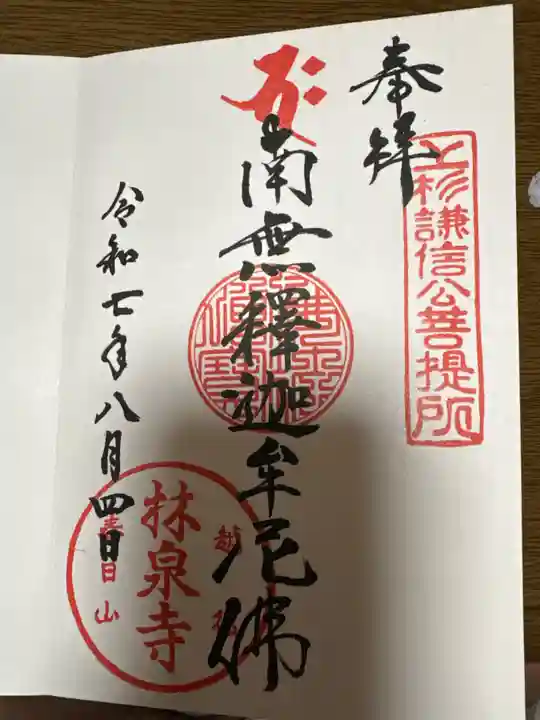 奉拝
上杉謙信公菩提所
南無釋迦牟尼佛
令和七年八月四日
越後
林泉寺
春日山